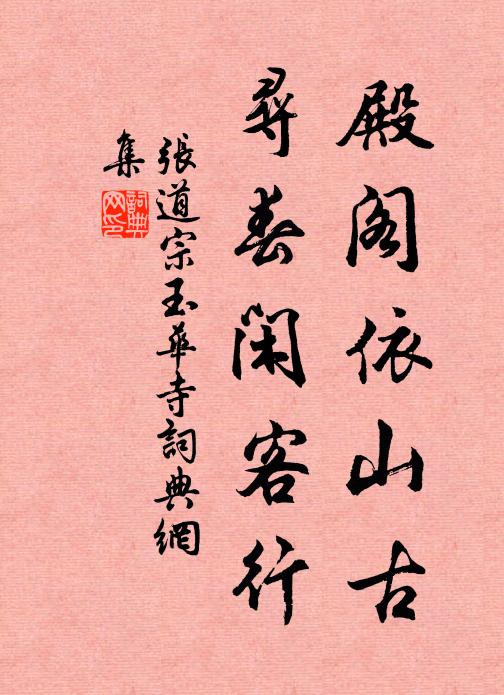 殿阁依山古
尋春闲客行
張道宗玉華寺詞典網
集
詞典
网印